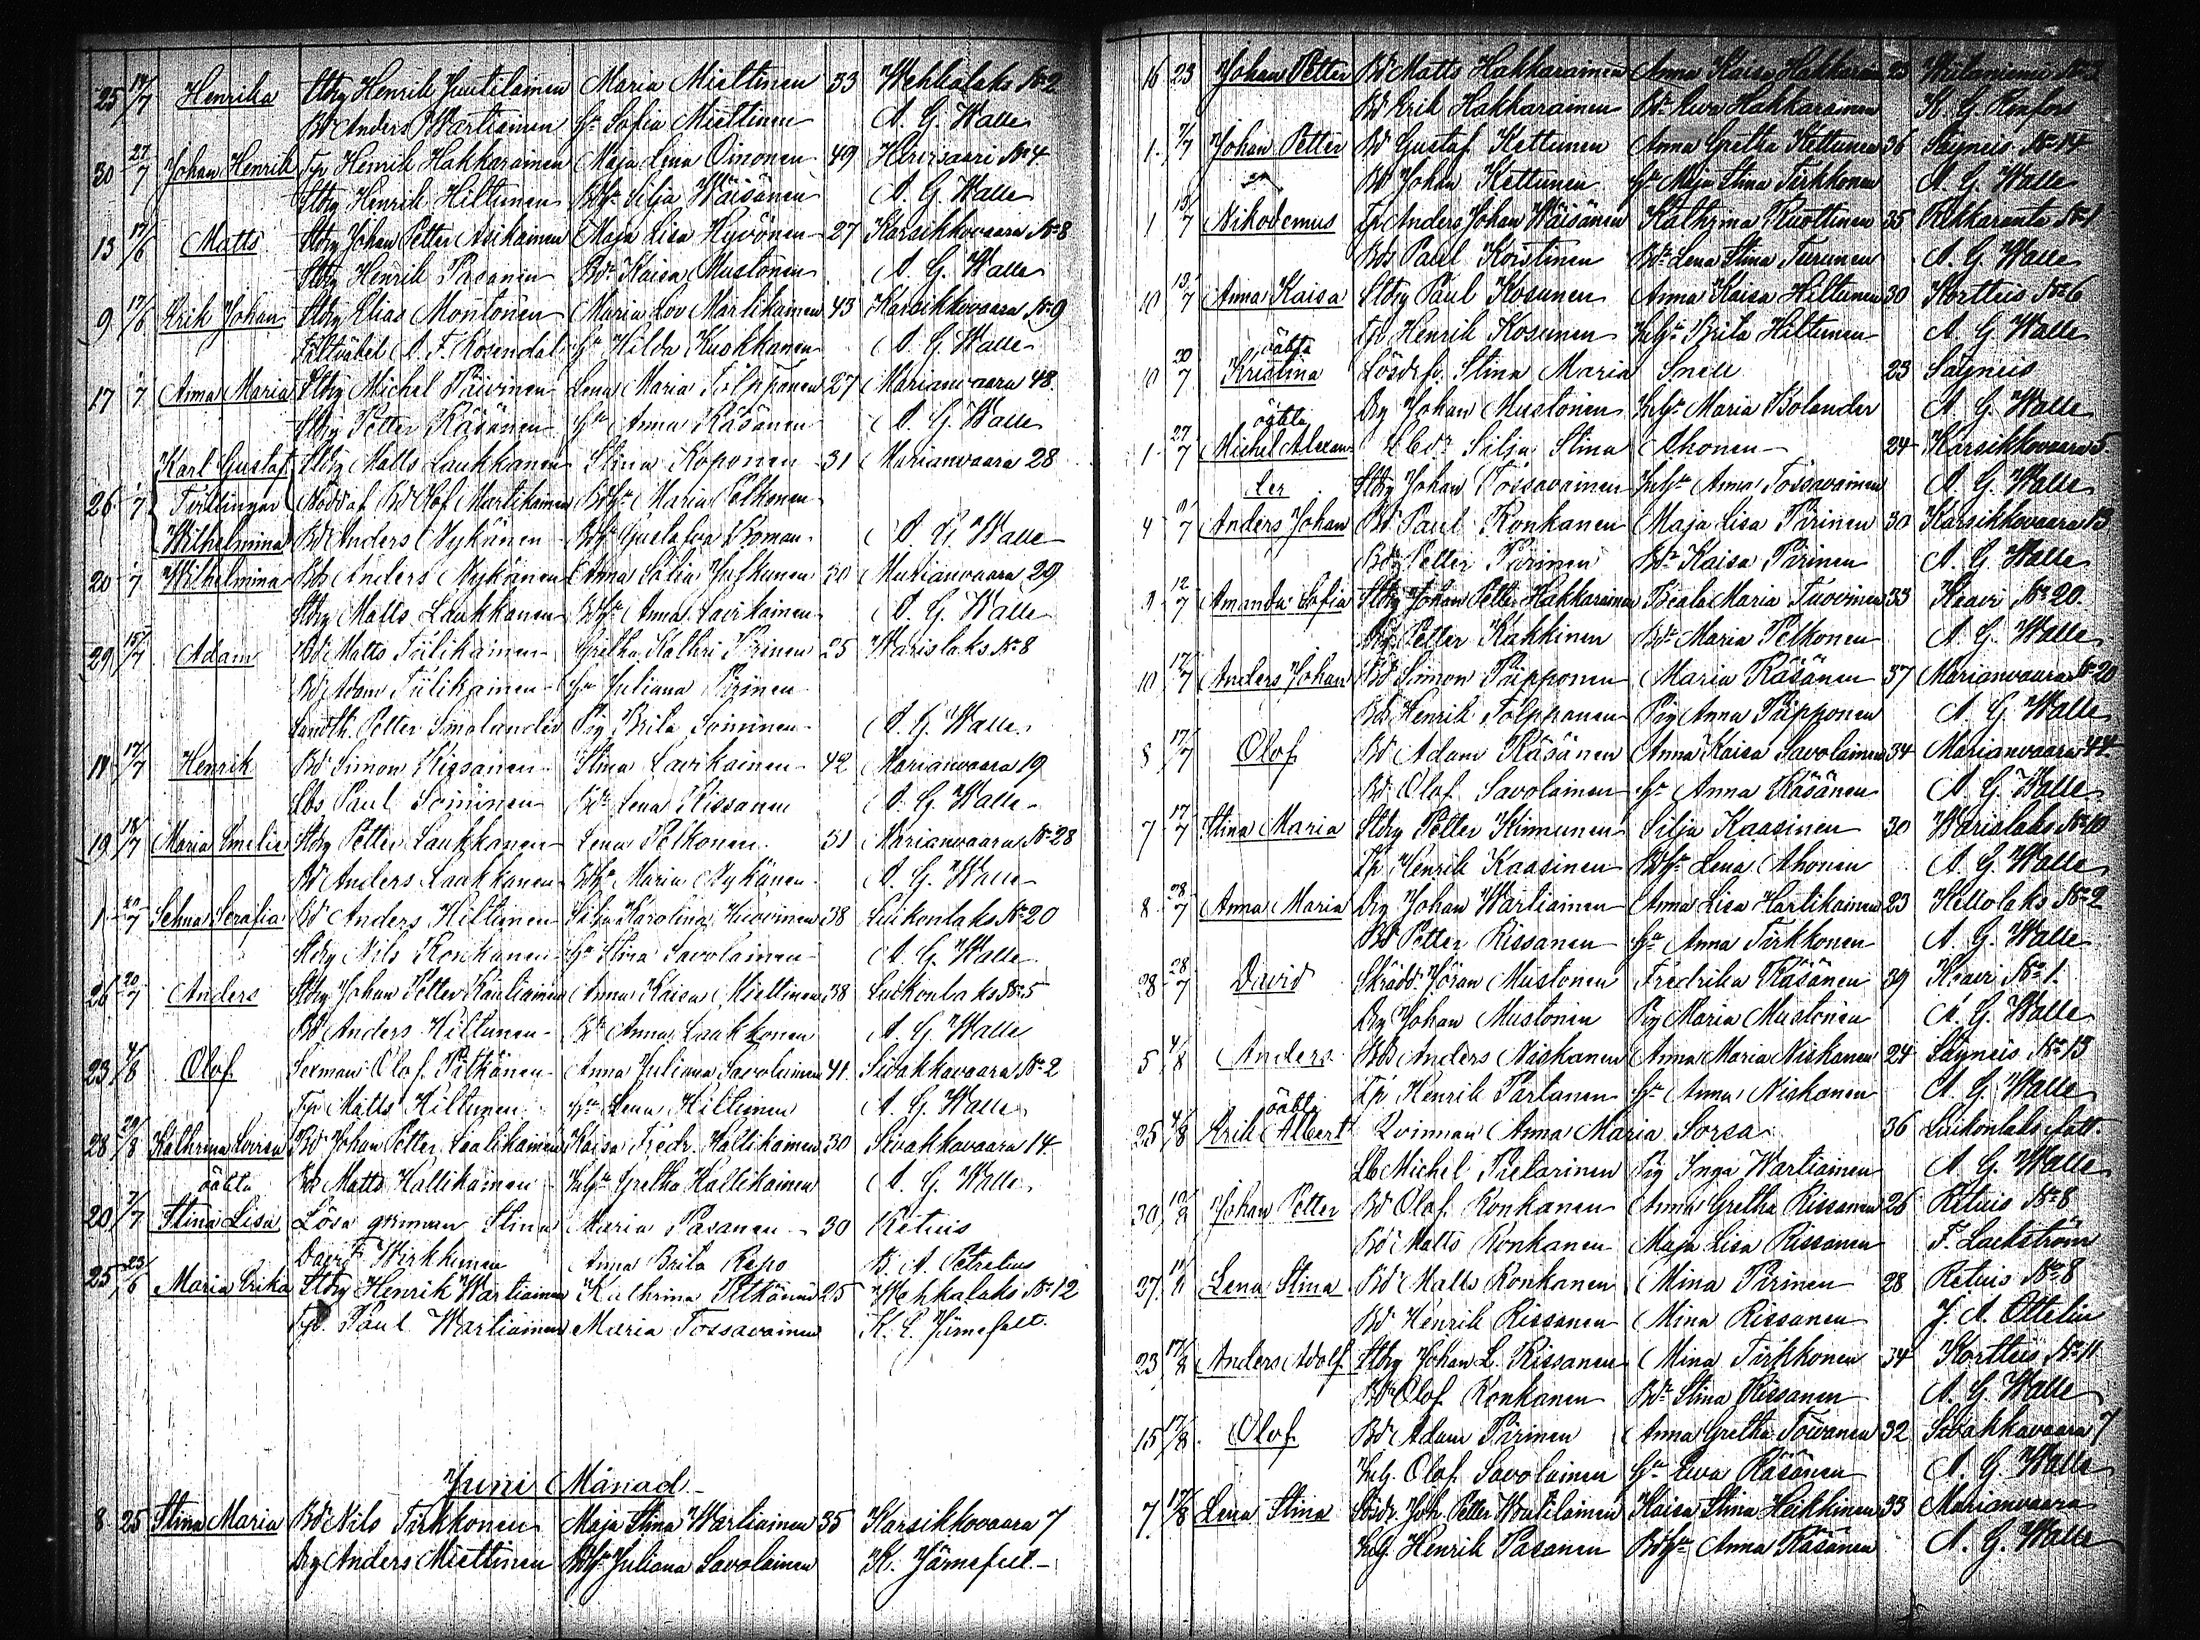 25 17/7 Henrika Stdrg Henrik Juutilainen Maria Miettinen 33 Wehkalaks No 2
Bd Anders Wartiainen Hu Sofia Miettinen A. G. Walle
30 27/7 Johan Henrik Tp Henrik Hakkarainen Maja Lena Oinonen 49 Hirvisaari No 4
Stdrg Henrik Hiltunen Bdhu Silja Wäisänen A. G. Walle
13 17/6 Matts Stdrg Johan Petter Asikainen Maja Lisa Hyvönen 27 Karsikkovaara No 8
Stdrg Henrik Pasanen Bdr Kaisa Mustonen A. G. Walle
9 17/6 Erik Johan Stdrg Elias Montonen Maria Lov Martikainen 43 Karsikkovaara No 9
Fältväbel A. F. Rosendal Hu Hilda Kuokkanen A. G. Walle
17 1/7 Anna Maria Stdrg Michel Päivinen Lena Maria Tolpponen 27 Marianvaara 48.
Stdrg Petter Räsänen Hu Anna Räsänen A. G. Walle
Karl Gustaf Stdrg Matts Laukkanen Stina Koponen 31 Marianvaara 28
26 1/7 Tvillingar Nöddöpt af Bd Olof Martikainen Bdhu Maria Pelkonen
Wilhelmina Bdr Anders Nykänen Bdhu Gustafva Boman A. G. Walle
20 1/7 Wilhelmina Bds Anders Nykänen Anna Sofia Juskunen 30 Marianvaara 29
Stdrg Matts Laukkanen Bdhu Anna Lavikainen A. G. Walle
29 15/7 Adam Bd Matts Tiilikainen Gretha Kathri Pirinen 25 Warislaks No 8
Bd Adam Tiilikainen Hu Juliana Pirinen
Landth. Petter Smolander Pig Brita Soininen A. G. Walle
18 17/7 Henrik Bd Simon Rissanen Stina Lavikainen 42 Marianvaara 19
Lbs Paul Soininen Bdr Lena Rissanen A. G. Walle
19 18/7 Maria Emelie Stdrg Petter Laukkanen Lena Pelkonen 31 Marianvaara No 28
Bd Anders Laukkanen Bdhu Maria Nykänen A. G. Walle
1 20/7 Selma Serafia Bd Anders Hiltunen Sofia Karolina Huovinen 38 Luikonlaks No 20
Stdrg Nils Ronkanen Hu Stina Savolainen A. G. Walle
26 20/7 Anders Stdrg Johan Petter Rautiainen Anna Kaisa Miettinen 38 Luikonlaks No 5
Bd Anders Hiltunen Bdr Anna Laakkonen A. G. Walle
23 4/8 Olof Sexman Olof Pitkänen Anna Juliana Savolainen 41 Sivakkavaara No 2
Tp Matts Hiltunen Hu Lena Hiltunen A. G. Walle
28 29/8 Kathrina Lovisa Bd Johan Petter Laatikainen Kaisa Fredr. Hallikainen 30 Sivakkavaara 14
oäkta Bds Matts Hallikainen Inhhu Gretha Hallikainen A. G. Walle
20 7/7 Stina Lisa Lösa qvinnan Stina Maria Pasanen 30 Retuis
David Wirkkunen Anna Brita Repo B. A. Petrelius
25 23/6 Maria Erika Stdrg Henrik Wartiainen Kathrina Pitkänen 25 Wehkalaks No 12
Tp. Paul Wartiainen Maria Tossavainen K. E. Järnefelt.
Juni Månad
8 25 Stina Maria Bd Nils Tirkkonen Maja Stina Wartiainen 35 Karsikkovaara 7
Drg Anders Miettinen Bdhu Juliana Savolainen K. Järnefelt
16 23 Johan Petter Bd Matts Hakkarainen Anna Kaisa Hakkarain 23
Bd Erik Hakkarainen Bdr Eva Hakkarainen K. G. Renfors
1 7/7 Johan Petter Bd Gustaf Kettunen Anna Gretha Kettunen 36 Säyneis No 14
Bd Johan Kettunen Hu Maja Stina Tirkkonen A. G. Walle
1 13/7 Nikodemus Tp Anders Johan Wäisänen Kathrina Ruottinen 35 Rekkaranta No 1
Bds Paul Koistinen Bdr Lena Stina Turunen A. G. Walle
10 13/7 Anna Kaisa Stdrg Paul Kosunen Anna Kaisa Hiltunen 30 Korttus No 6
Tp Henrik Kosunen Inhhu Brita Hiltunen A. G. Walle
oäkta
10 20/7 Kristina Lösdrf. Stina Maria Snell 23 Säyneis
Drg Johan Mustonen Inhhu Maria Bolander A. G. Walle
oäkta
1 27/7 Michel Alexan- Lbdr Silja Stina Ahonen 24 Karsikkovaara 5.
der Stdrg Johan Tossavainen Inhhu Anna Tossavainen A. G. Walle
4 9/7 Anders Johan Bd Paul Ronkanen Maja Lisa Pirinen 30 Karsikkovaara 13
Bdr Petter Pirinen Bdr Kaisa Pirinen A. G. Walle
3 12/7 Amanda Sofia Stdrg Johan Petter Hakkarainen Beata Maria Tuovinen 33 Kaavi No 20.
Drg Petter Kakkinen Bdr Maria Pelkonen A. G. Walle
10 17/7 Anders Johan Bd Simon Piipponen Maria Räsänen 37 Marianvaara No 20
Bds Henrik Tolpponen Pig Anna Piipponen A. G. Walle
8 17/7 Olof Bd Adam Räsänen Anna Kaisa Savolainen 34 Marianvaara 44
Bd. Olof Savolainen Hu Anna Räsänen A. G. Walle
7 17/7 Stina Maria Stdrg Petter Kinnunen Silja Kaasinen 30 Warislaks No 10
Tp Henrik Kaasinen Bdhu Lena Ahonen A. G. Walle
8 28/7 Anna Maria Drg Johan Wartiainen Anna Lisa Hartikainen 23 Kettolaks No 2
Bd Petter Rissanen Hu Anna Tirkkonen A. G. Walle
28 28/7 David Skrädd. Jöran Mustonen Fredrika Räsänen 39 Kaavi No 1.
Drg Johan Mustonen Pig Maria Mustonen A. G. Walle
5 4/8 Anders Bds Anders Niskanen Anna Maria Niskanen 24 Säyneis No 13
Tp Henrik Partanen Hu Anna Niskanen A. G. Walle
oäkta
25 4/8 Erik Albert Qvinnan Anna Maria Sorsa 36 Luikonlaks fatt.
Lb Michel Pietarinen Pig Inga Wartiainen A. G. Walle
30 12/8 Johan Petter Bd Olof Ronkanen Anna Gretha Rissanen 26 Retuis No 8
Bd Matts Ronkanen Maja Lisa Rissanen F. Lackström
27 11/8 Lena Stina Bd Matts Ronkanen Mina Pirinen 28 Retuis No 8
Bd Henrik Rissanen Mina Rissanen J. A. Ottelin
23 17/8 Anders Adolf Stdrg Johan L. Rissanen Mina Tirkkonen 34 Korttus No 11
Bdr Olof Ronkanen Bdr Stina Rissanen A. G. Walle
15 17/8 Olof Bd Adam Pirinen Anna Gretha Toivanen 32 Sivakkavaara 7
Inh. Olof Savolainen Hu Eva Räsänen A. G. Walle
7 17/8 Lena Stina Stdr. Joh. Petter Woutilainen Kaisa Stina Heikkinen 33 Marianvaara
Inh. Henrik Pasanen Bdhu Anna Räsänen A. G. Walle